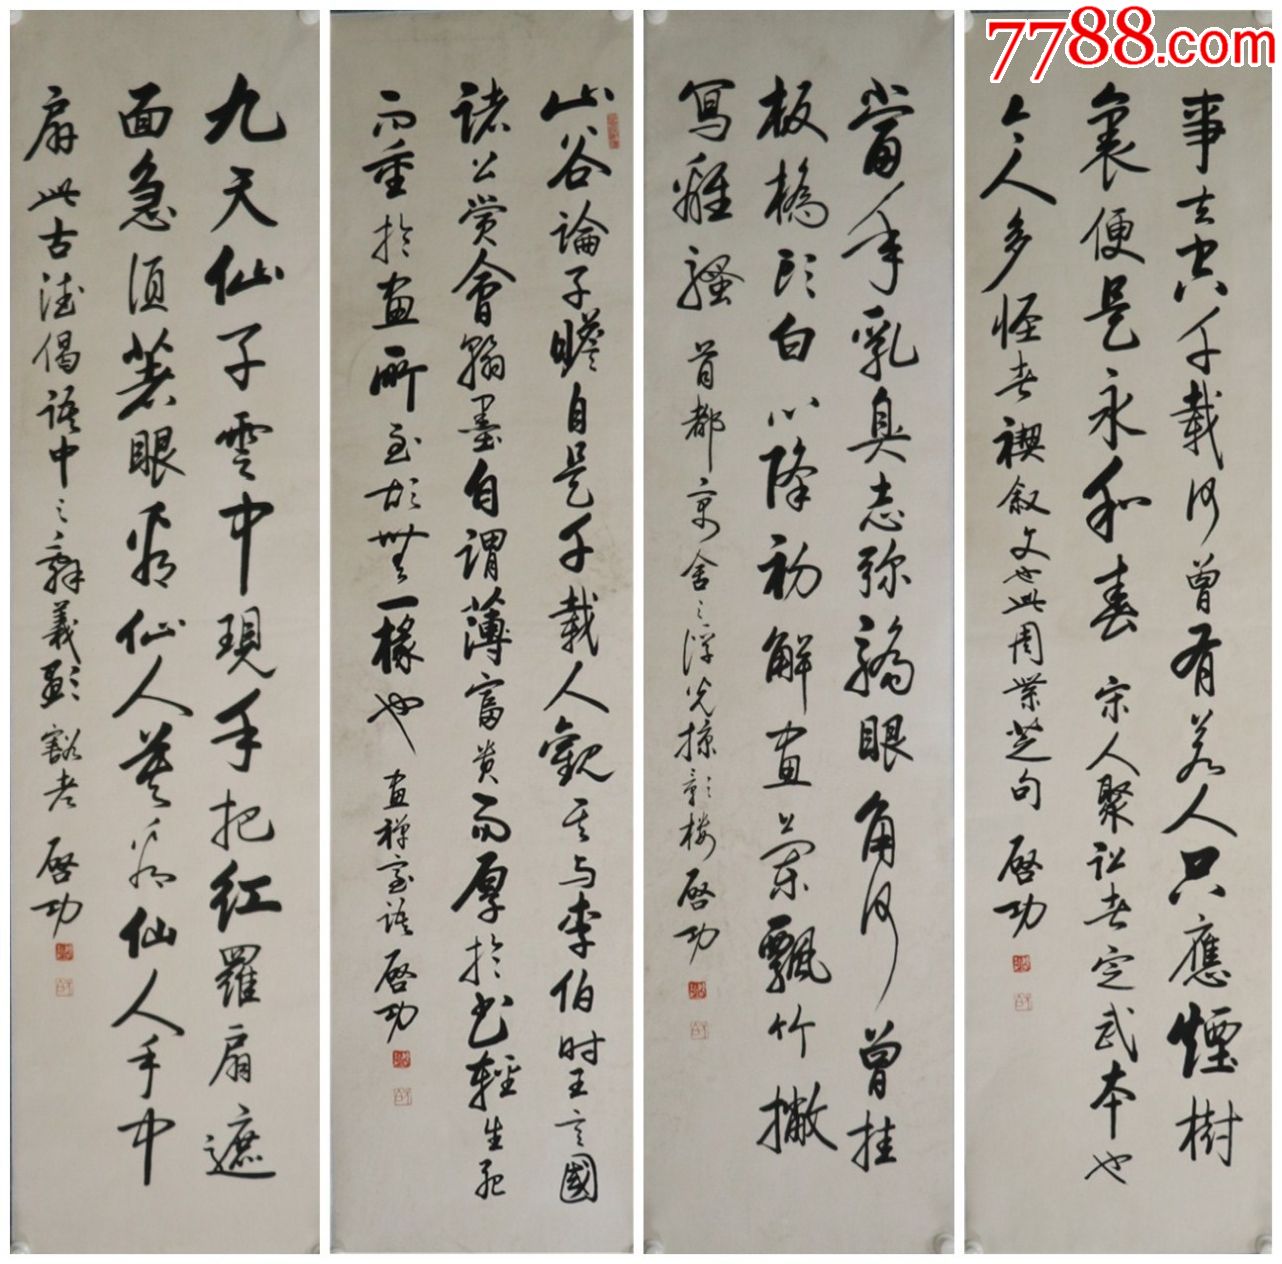 7788.com
事去空千載何曾有若人只應煙樹
裏便是永和春 宋人聚訟者定武本也
今人多怪者禊叙文也此周業芝句 啓功
當年乳臭志彌驕眼角何曾挂
板橋頭白心降初解畫蘭飄竹撇
寫離騷 首都京舍之浮光掠影樓 啓功
山谷論子瞻自是千載人觀其與李伯時王言國
諸公賞會翰墨自謂薄富貴而厚於書輕生死
而重於畫所至故無一椽也 畫禪室語 啓功
九天仙子雲中現手把紅羅扇遮
面急須著眼看仙人莫看仙人手中
扇此古德偈語中之辭義顯豁者 啓功